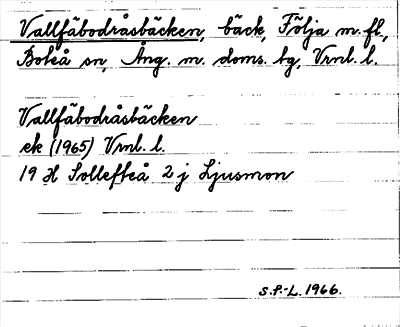 Vallfäbodråsbäcken, bäck, Följa m. fl.,
Boteå sn, Ång. m. doms. bg, Vrnl. l.
Vallfäbodråsbäcken
ek (1965) Vrnl. l.
19 H Sollefteå 2 j Ljusmon
S.P.-L. 1966.